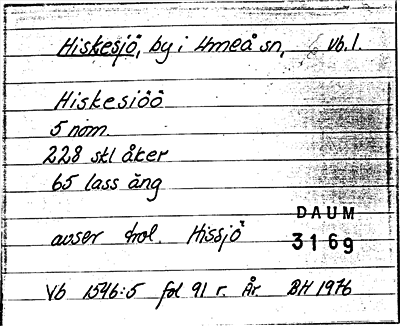 Hiskesjö, by i Umeå sn, Vb.l.
Hiskesiöö
5 nom.
228 skl åker
65 lass äng
DAUM
avser trol. Hissjö
3169
Vb 1546:5 fol 91 r. År. BH 1976